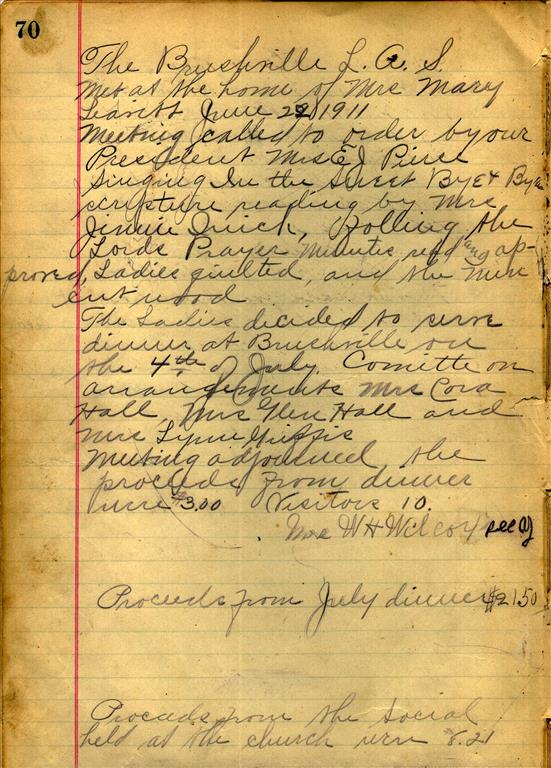 70
The Brushville L. A. S.
Met at the home of Mrs Mary
Leavitt June 22 1911
Meeting called to order by our
President Mrs E J Pierce
Singing In the Sweet By & By
scripture reading by Mrs
Jinnie Quick, Following the
Lords Prayer Minutes read and ap-
proved, Ladies quilted, and the men
cut wood
The Ladies decided to serve
dinner at Brushville on
the 4th of July. Comitte on
arrangements Mrs Cora
Hall, Mrs Glen Hall and
Mrs Lynn Griffis
Meeting adjourned the
proceeds from dinner
were $3.00 Visitors 10.
Mrs W H Wilcox secy
Proceeds from July dinner $21.50
Proceeds from the social
held at the church were 8.21